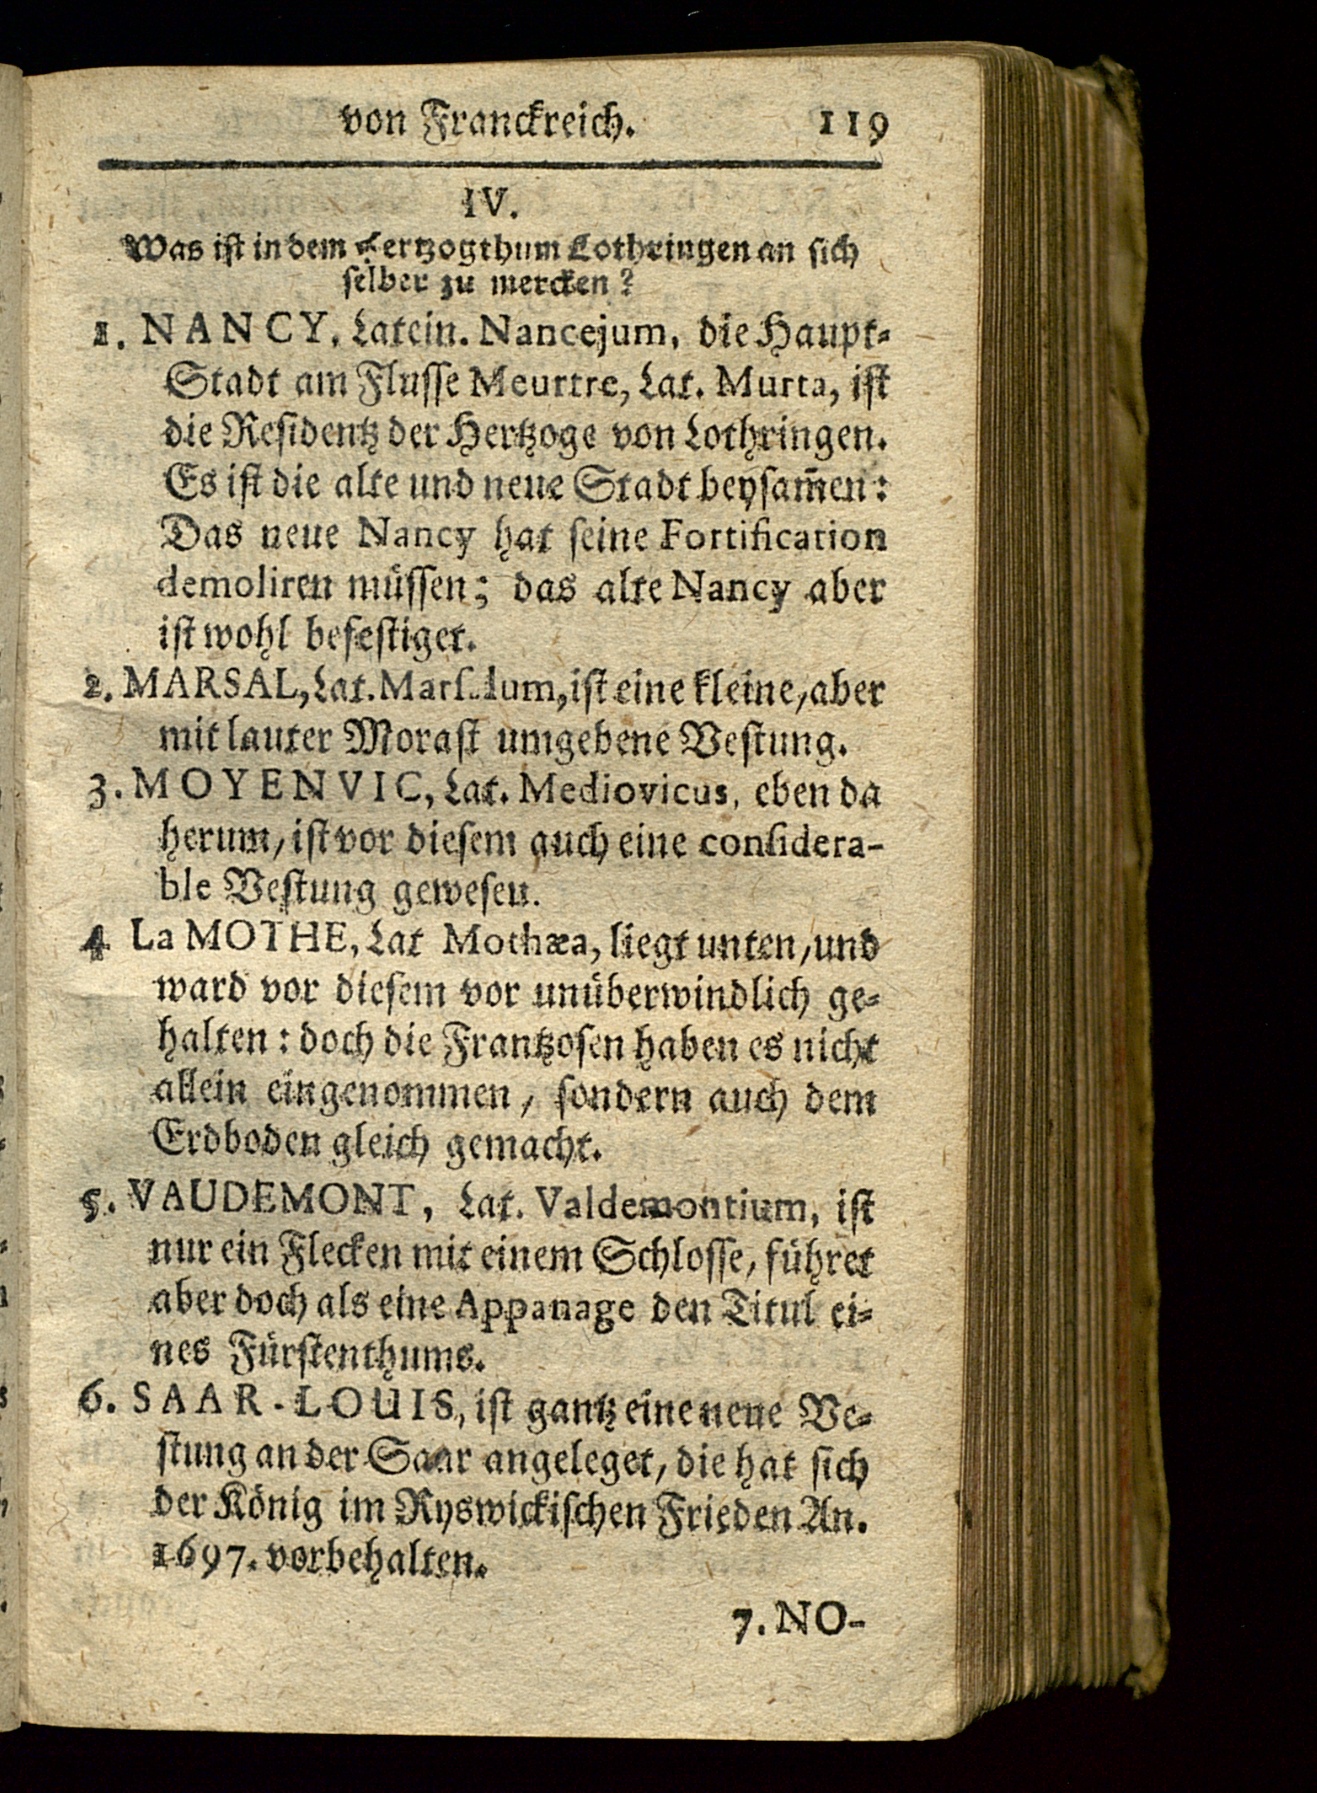 von Franckreich. 119
IV.
Was ist in dem Hertzogthum Lothringen an sich
selber zu mercken?
1. NANCY, Latein. Nancejum, die Haupt-
Stadt am Flusse Meurtre, Lat. Murta, ist
die Residentz der Hertzoge von Lothringen.
Es ist die alte und neue Stadt beysam̃en:
Das neue Nancy hat seine Fortification
demoliren müssen; das alte Nancy aber
ist wohl befestiget.
2. MARSAL, Lat. Marsalum, ist eine kleine, aber
mit lauter Morast umgebene Vestung.
3. MOYENVIC, Lat. Mediovicus, eben da
herum, ist vor diesem auch eine considera-
ble Vestung gewesen.
4 La MOTHE, Lat Mothæa, liegt unten, und
ward vor diesem vor unüberwindlich ge-
halten: doch die Frantzosen haben es nicht
allein eingenommen, sondern auch dem
Erdboden gleich gemacht.
5. VAUDEMONT, Lat. Valdemontium, ist
nur ein Flecken mit einem Schlosse, führet
aber doch als eine Appanage den Titul ei-
nes Fürstenthums.
6. SAAR-LOUIS, ist gantz eine neue Ve-
stung an der Saar angeleget, die hat sich
der König im Ryswickischen Frieden An.
1697. vorbehalten.
7. NO-